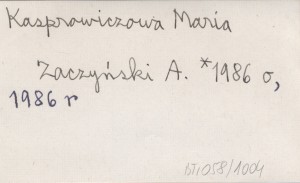 Kasprowiczowa Maria
Zaczyński A. *1986 o,
1986 r
IST/058/1004